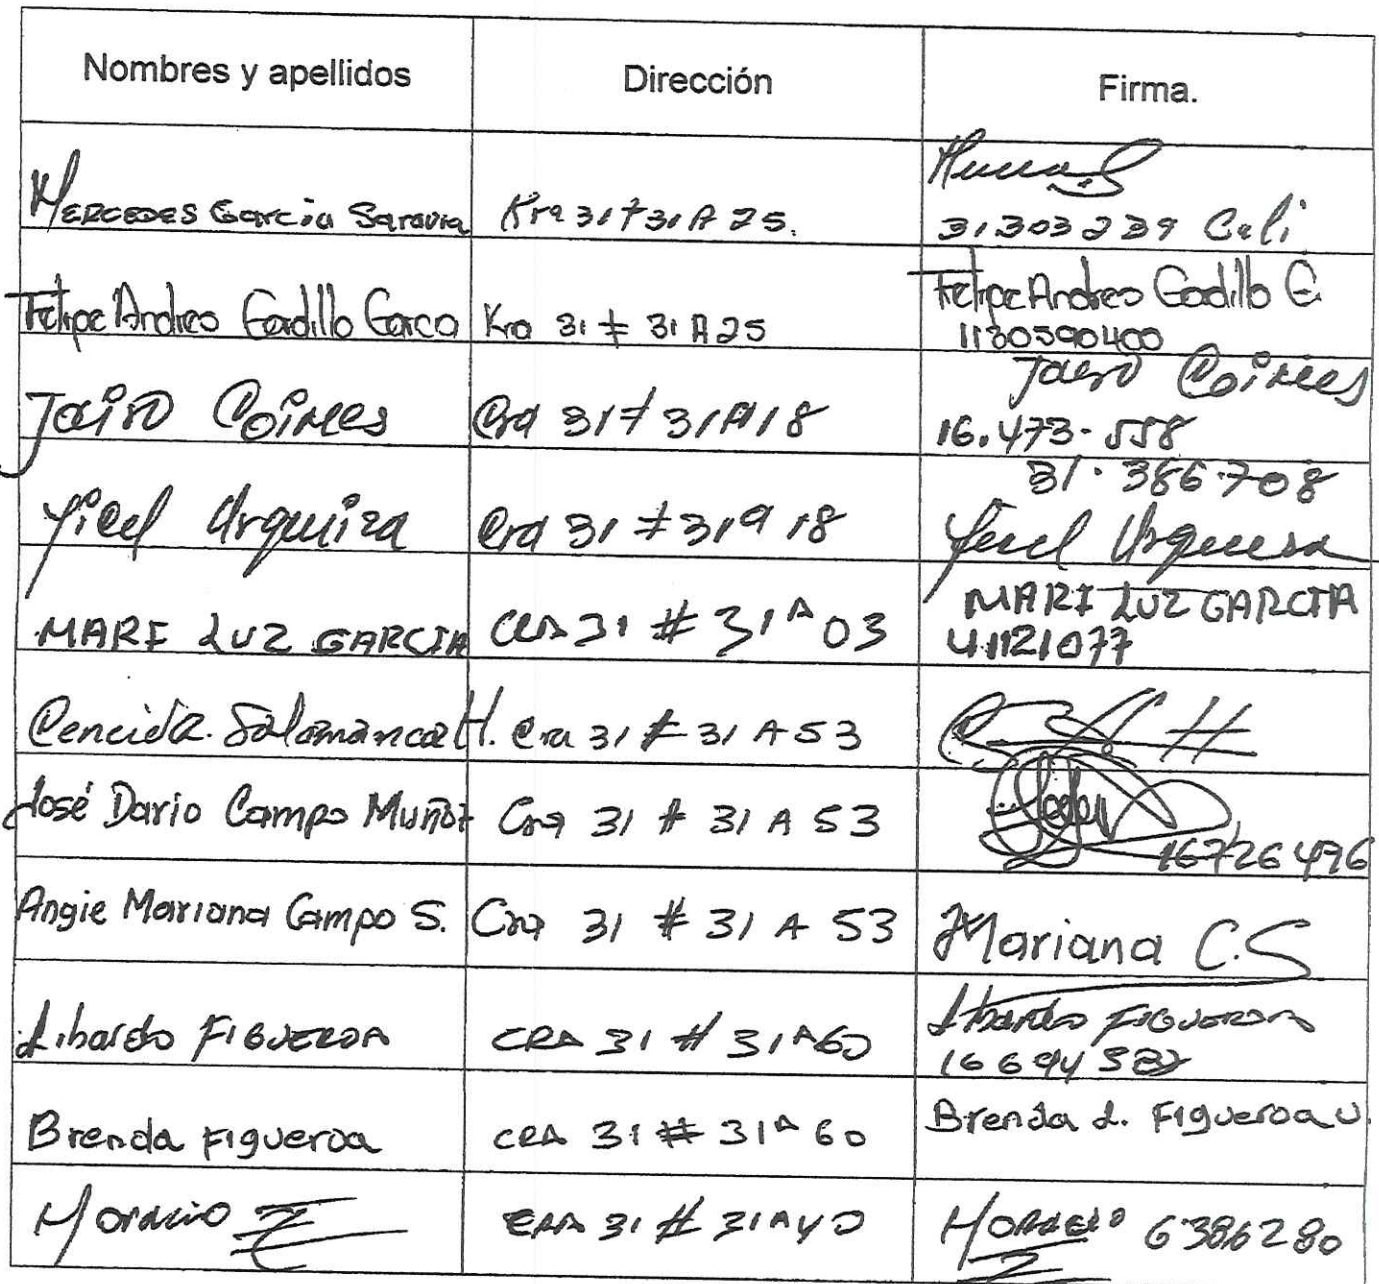 Nombres y apellidos Dirección Firma.
MERCEDES Garcia Saravia Kra 31 # 31 A 25.
31303239 Cali
Felipe Andres Gordillo Garca Kra 31 # 31 A 25 Felipe Andres Gordillo G
1130590400
Jairo Coimes Cra 31 # 31A 18 Jairo Coimes
16.473.558
31.386.708
Yicel Urquiza Cra 31 # 31A 18 Yicel Urquiza
MARI LUZ GARCIA CRA 31 # 31A 03 MARI LUZ GARCIA
41121077
Salamanca H. Cra 31 # 31 A 53
José Dario Campo Muñoz Cra 31 # 31 A 53
16726496
Angie Mariana Campo S. Cra 31 # 31 A 53 Mariana C.S
Libardo FIGUEROA CRA 31 # 31A60 Libardo FIGUEROA
16694582
Brenda Figueroa CRA 31 # 31A 60 Brenda L. Figueroa U.
Horacio CRA 31 # 31A40 HORACIO 6386280